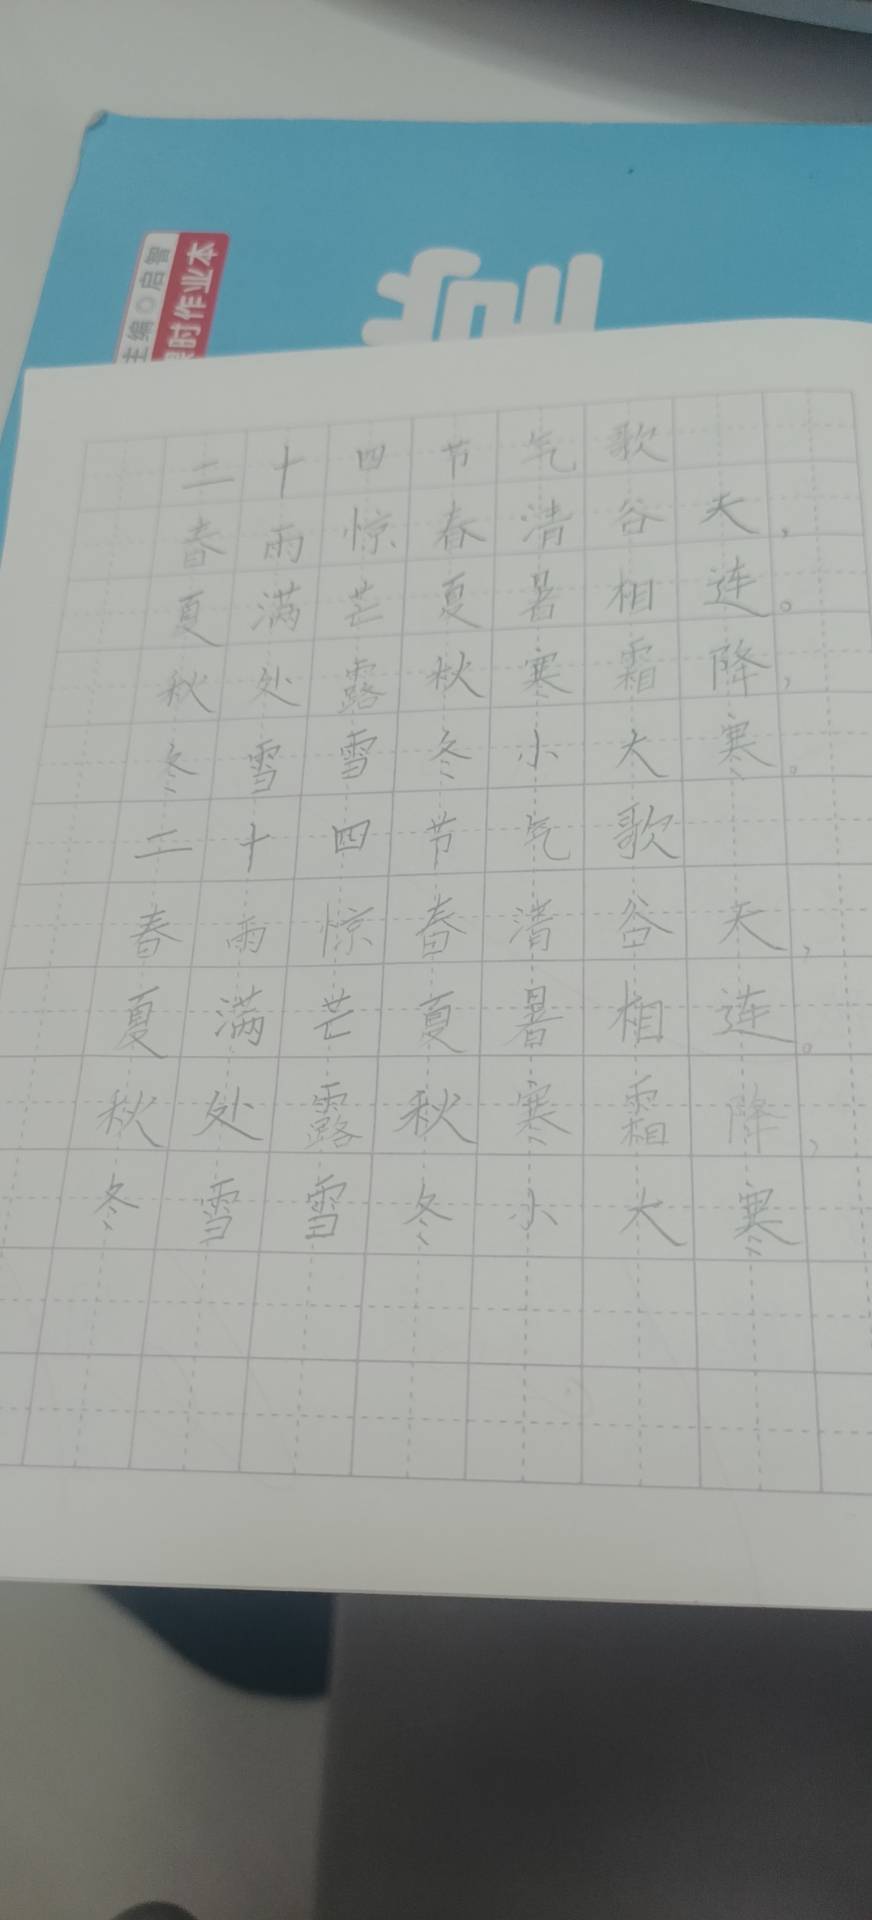 主编◎启智
课时作业本
二十四节气歌
春雨惊春清谷天，
夏满芒夏暑相连。
秋处露秋寒霜降，
冬雪雪冬小大寒。
二十四节气歌
春雨惊春清谷天，
夏满芒夏暑相连。
秋处露秋寒霜降，
冬雪雪冬小大寒